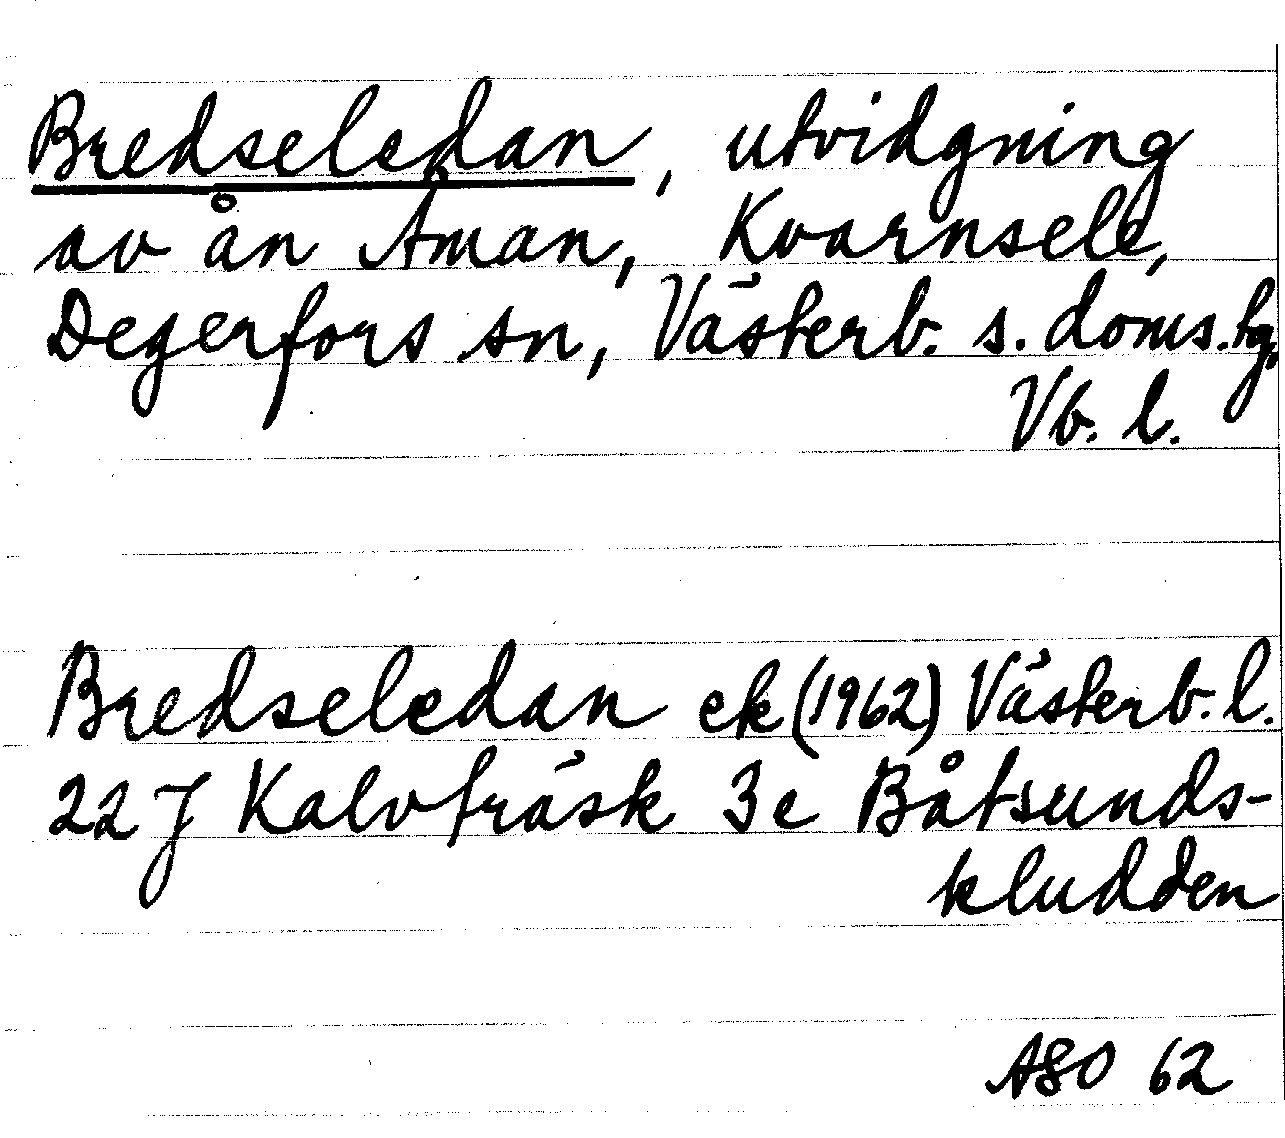 Bredseledan, utvidgning
av ån Åman, Kvarnsele,
Degerfors sn, Västerb. s. doms.tg.
Vb. l.
Bredseledan ek (1962) Västerb. l.
22 J Kalvträsk 3e Båtsunds-
kludden
ASO 62